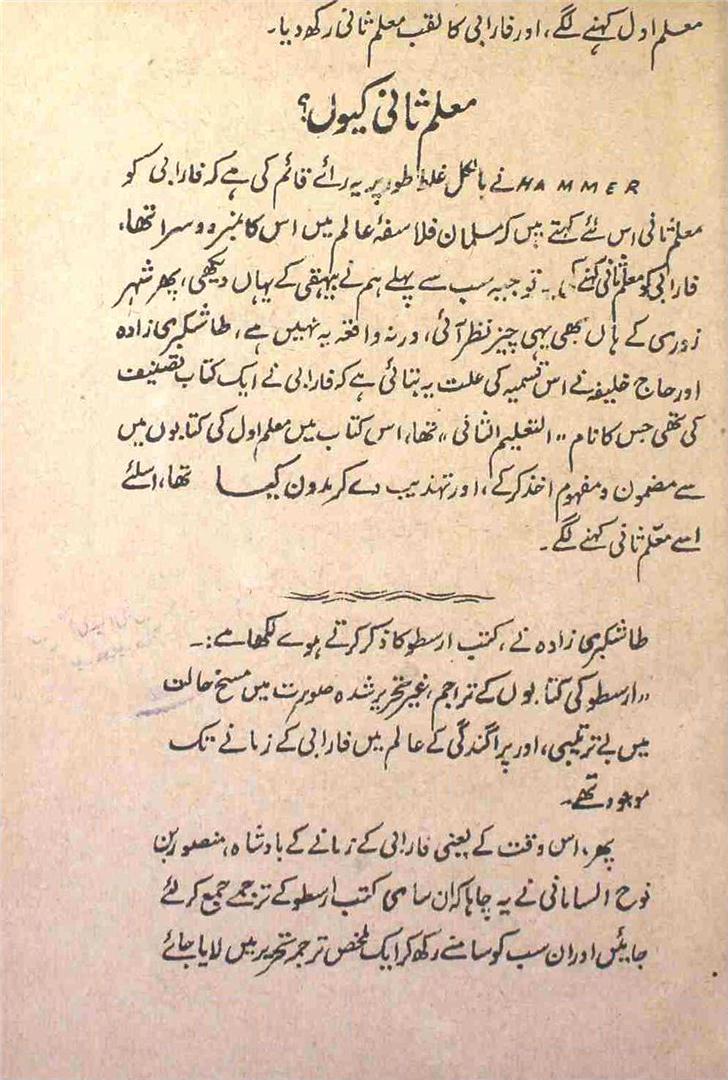 معلم اول کہنے لگے، اور فارابی کا لقب معلم ثانی رکھ دیا۔
معلم ثانی کیوں؟
HAMMER نے بالکل غلط طور پر یہ رائے قائم کی ہے کہ فارابی کو
معلم ثانی اس لئے کہتے ہیں کہ مسلمان فلاسفۂ عالم میں اس کا نمبر دوسرا تھا،
فارابی کو معلم ثانی کہنے کی یہ توجیہ سب سے پہلے ہم نے بیہقی کے یہاں دیکھی، پھر شہر
زوری کے ہاں بھی یہی چیز نظر آئی، ورنہ واقعہ یہ نہیں ہے، طاشکبری زادہ
اور حاج خلیفہ نے اس تسمیہ کی علت یہ بتائی ہے کہ فارابی نے ایک کتاب تصنیف
کی تھی جس کا نام ,, التعلیم الثانی ،، تھا، اس کتاب میں معلم اول کی کتابوں میں
سے مضمون و مفہوم اخذ کرکے، اور تہذیب دے کر مدون کیا تھا، اسلئے
اسے معلّم ثانی کہنے لگے۔
طاشکبری زادہ نے، کتب ارسطو کا ذکر کرتے ہوے لکھا ہے:۔
,, ارسطو کی کتابوں کے تراجم، غیر تحریر شدہ صورت میں مسخ حالت
میں بے ترتیبی، اور پراگندگی کے عالم میں فارابی کے زمانے تک
موجود تھے۔
پھر، اس وقت کے یعنی فارابی کے زمانے کے بادشاہ، منصور بن
نوح السامانی نے یہ چاہا کہ ان سامی کتب ارسطو کے ترجمے جمع کر لئے
جائیں اور ان سب کو سامنے رکھ کر ایک ملخص ترجمہ تحریر میں لایا جائے